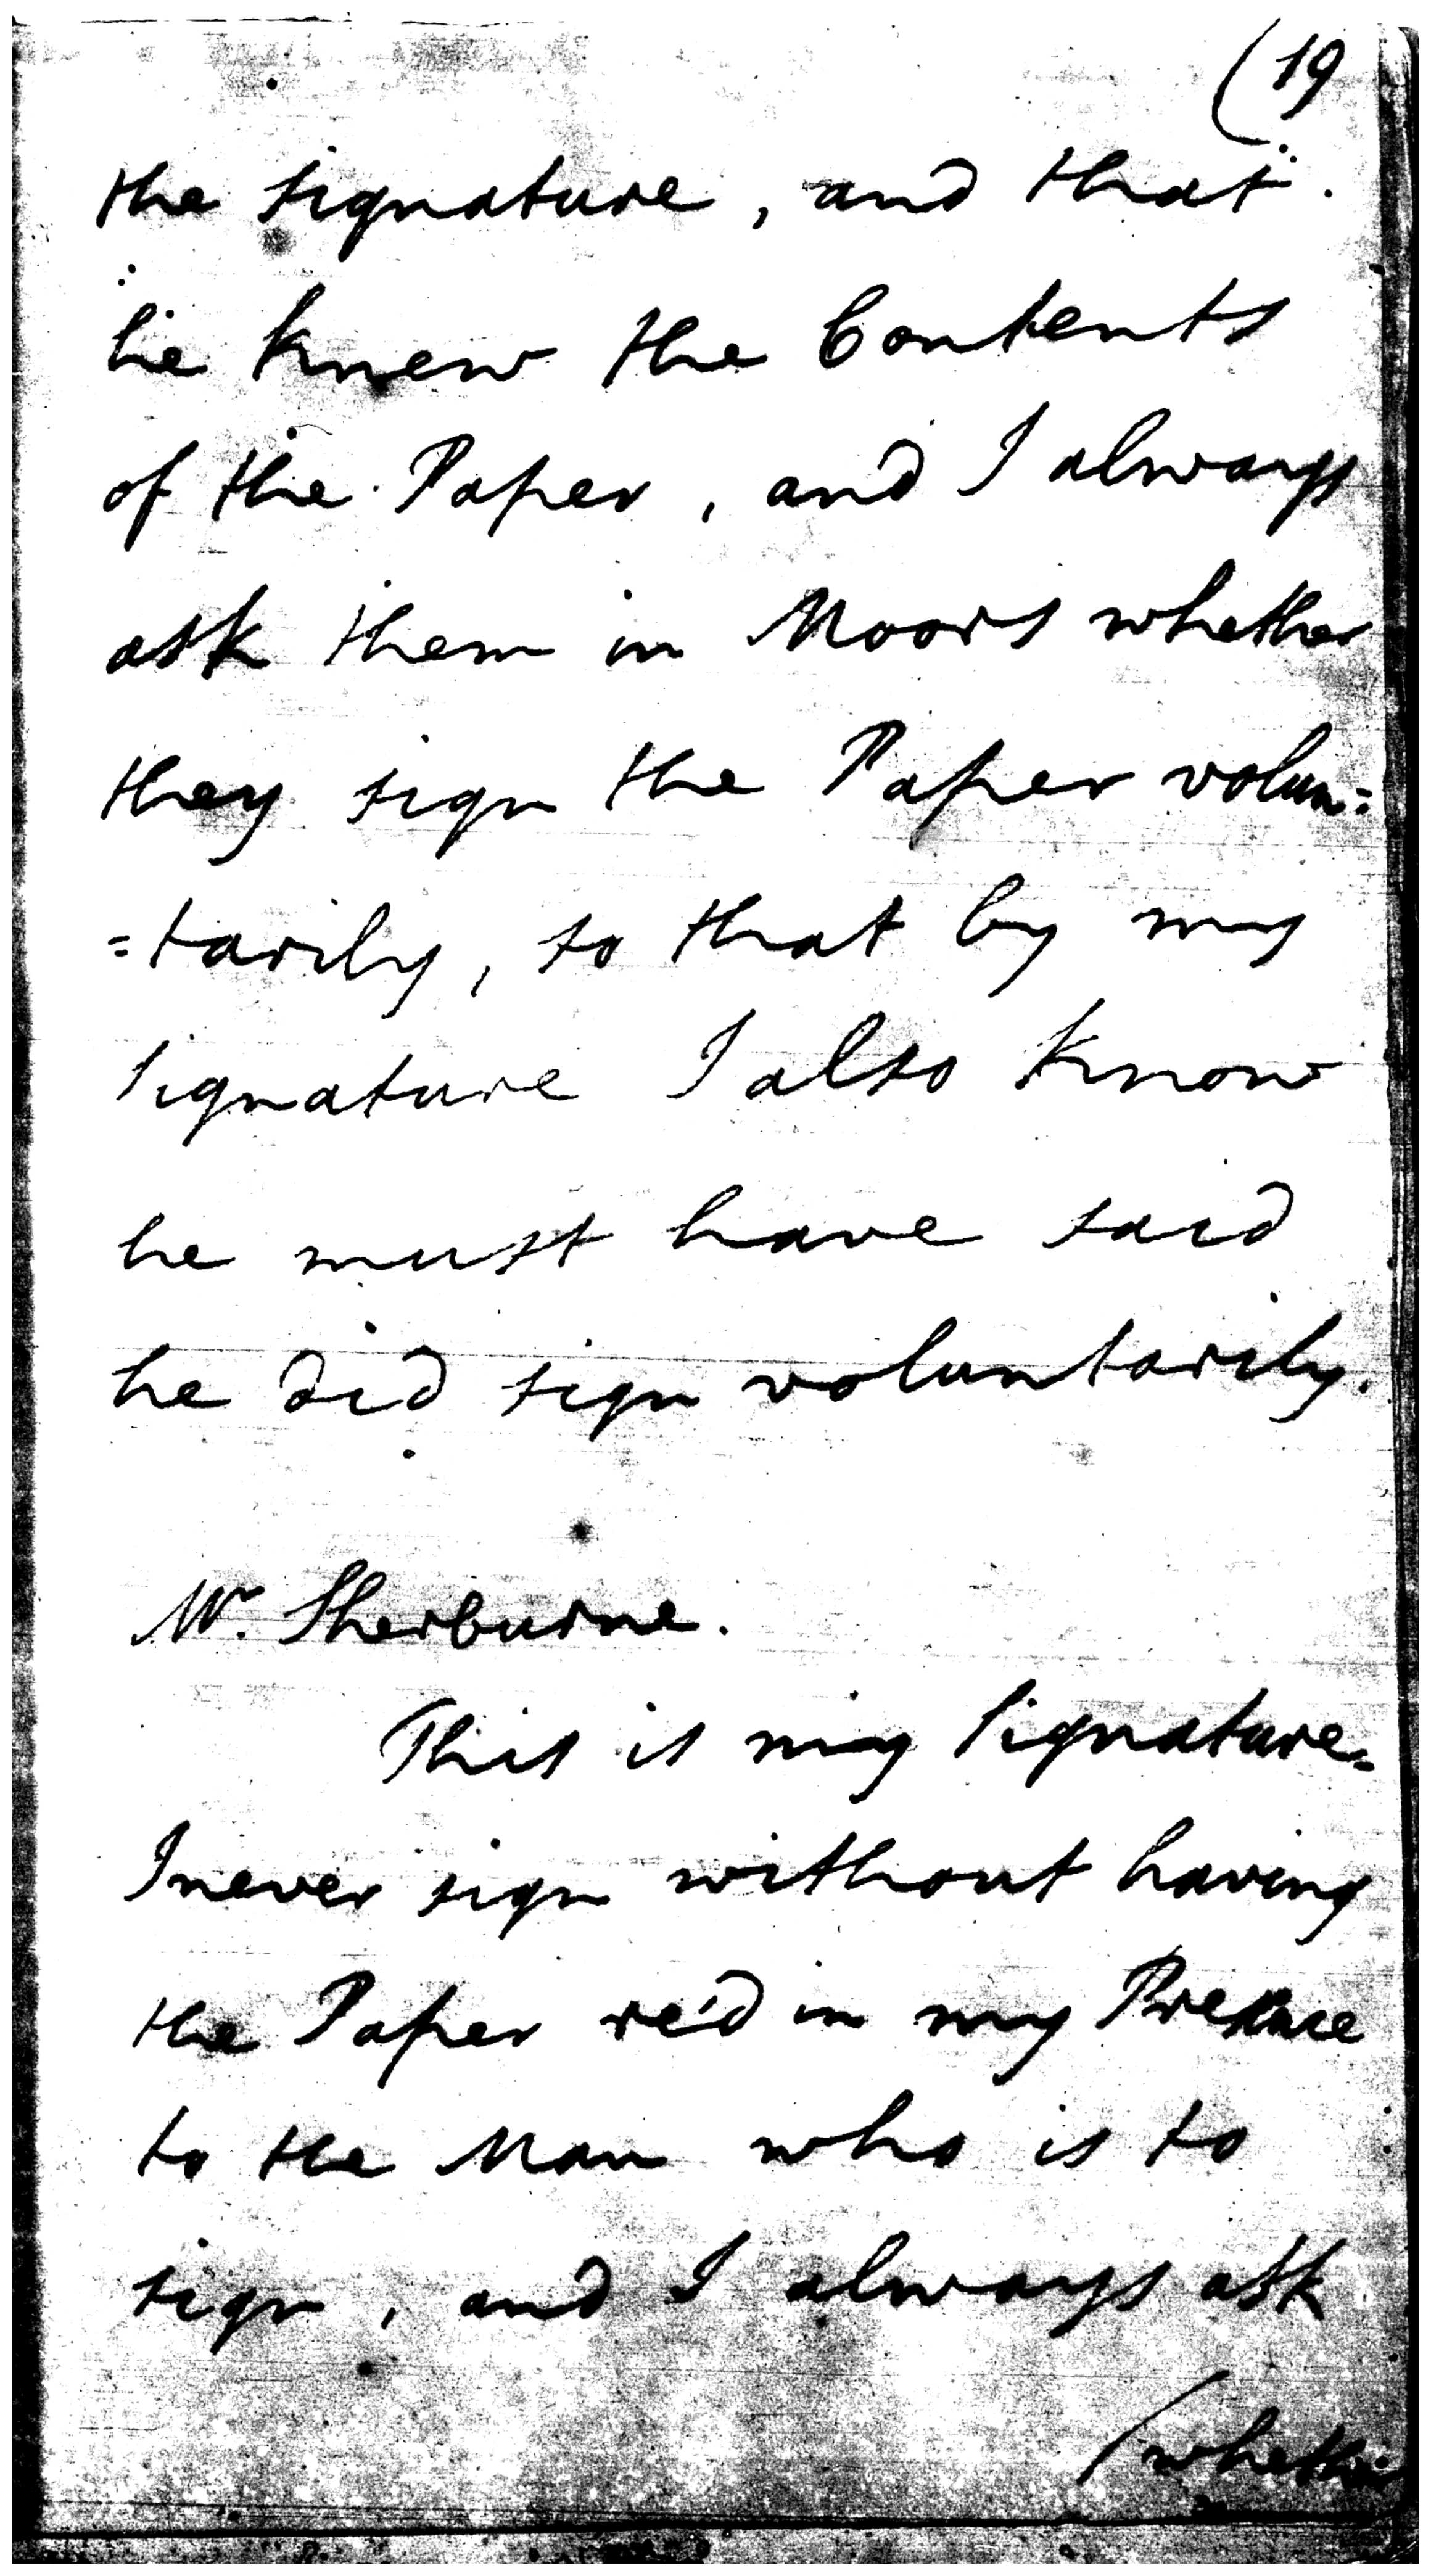 (19
the signature, and that
he knew the Contents
of the Paper, and I always
ask them in Moors whether
they sign the Paper volun=
=tarily, so that by my
signature I also know
he must have said
he did sign voluntarily.
Mr. Sherburne.
This is my signature.
I never sign without having
the Paper re'd in my Presence
to the Man who is to
sign, and I always ask
(whether